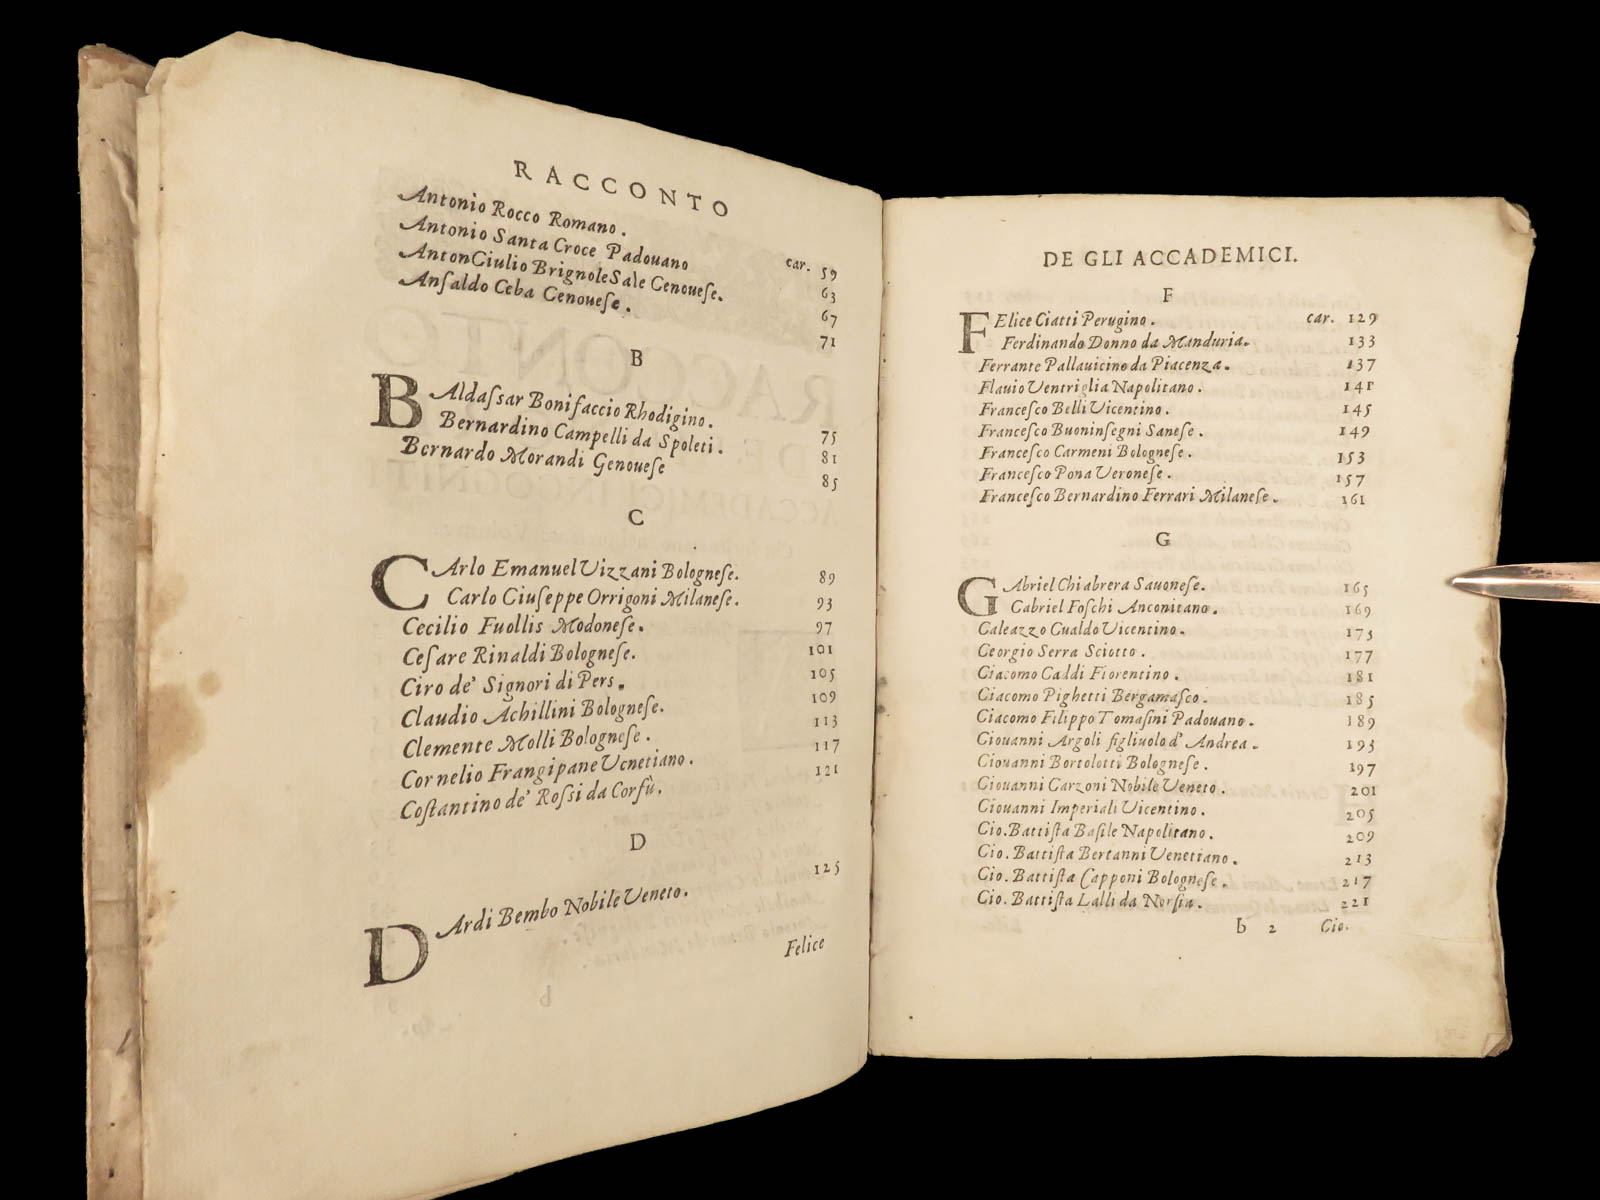 RACCONTO
Antonio Rocco Romano. car. 59
Antonio Santa Croce Padouano 63
AntonGiulio BrignoleSale Genouese. 67
Ansaldo Ceba Genouese. 71
B
BAldassar Bonifaccio Rhodigino. 75
Bernardino Campelli da Spoleti. 81
Bernardo Morandi Genouese 85
C
CArlo Emanuel Vizzani Bolognese. 89
Carlo Giuseppe Orrigoni Milanese. 93
Cecilio Fuollis Modonese. 97
Cesare Rinaldi Bolognese. 101
Ciro de' Signori di Pers. 105
Claudio Achillini Bolognese. 109
Clemente Molli Bolognese. 113
Cornelio Frangipane Venetiano. 117
Costantino de' Rossi da Corfù. 121
D
DArdi Bembo Nobile Veneto. 125
Felice
DE GLI ACCADEMICI.
F
FElice Ciatti Perugino. car. 129
Ferdinando Donno da Manduria. 133
Ferrante Pallauicino da Piacenza. 137
Flauio Ventriglia Napolitano. 141
Francesco Belli Vicentino. 145
Francesco Buoninsegni Sanese. 149
Francesco Carmeni Bolognese. 153
Francesco Pona Veronese. 157
Francesco Bernardino Ferrari Milanese. 161
G
GAbriel Chiabrera Sauonese. 165
Gabriel Foschi Anconitano. 169
Galeazzo Gualdo Vicentino. 173
Georgio Serra Sciotto. 177
Giacomo Gaddi Fiorentino. 181
Giacomo Pighetti Bergamasco. 185
Giacomo Filippo Tomasini Padouano. 189
Giouanni Argoli figliuolo d' Andrea. 193
Giouanni Bortolotti Bolognese. 197
Giouanni Garzoni Nobile Veneto. 201
Giouanni Imperiali Vicentino. 205
Gio. Battista Basile Napolitano. 209
Gio. Battista Bertanni Venetiano. 213
Gio. Battista Capponi Bolognese. 217
Gio. Battista Lalli da Norsia. 221
b 2 Gio.